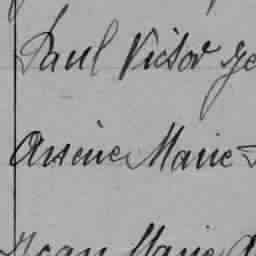 Paul Victor Je
Arsène Marie
Jean Marie A